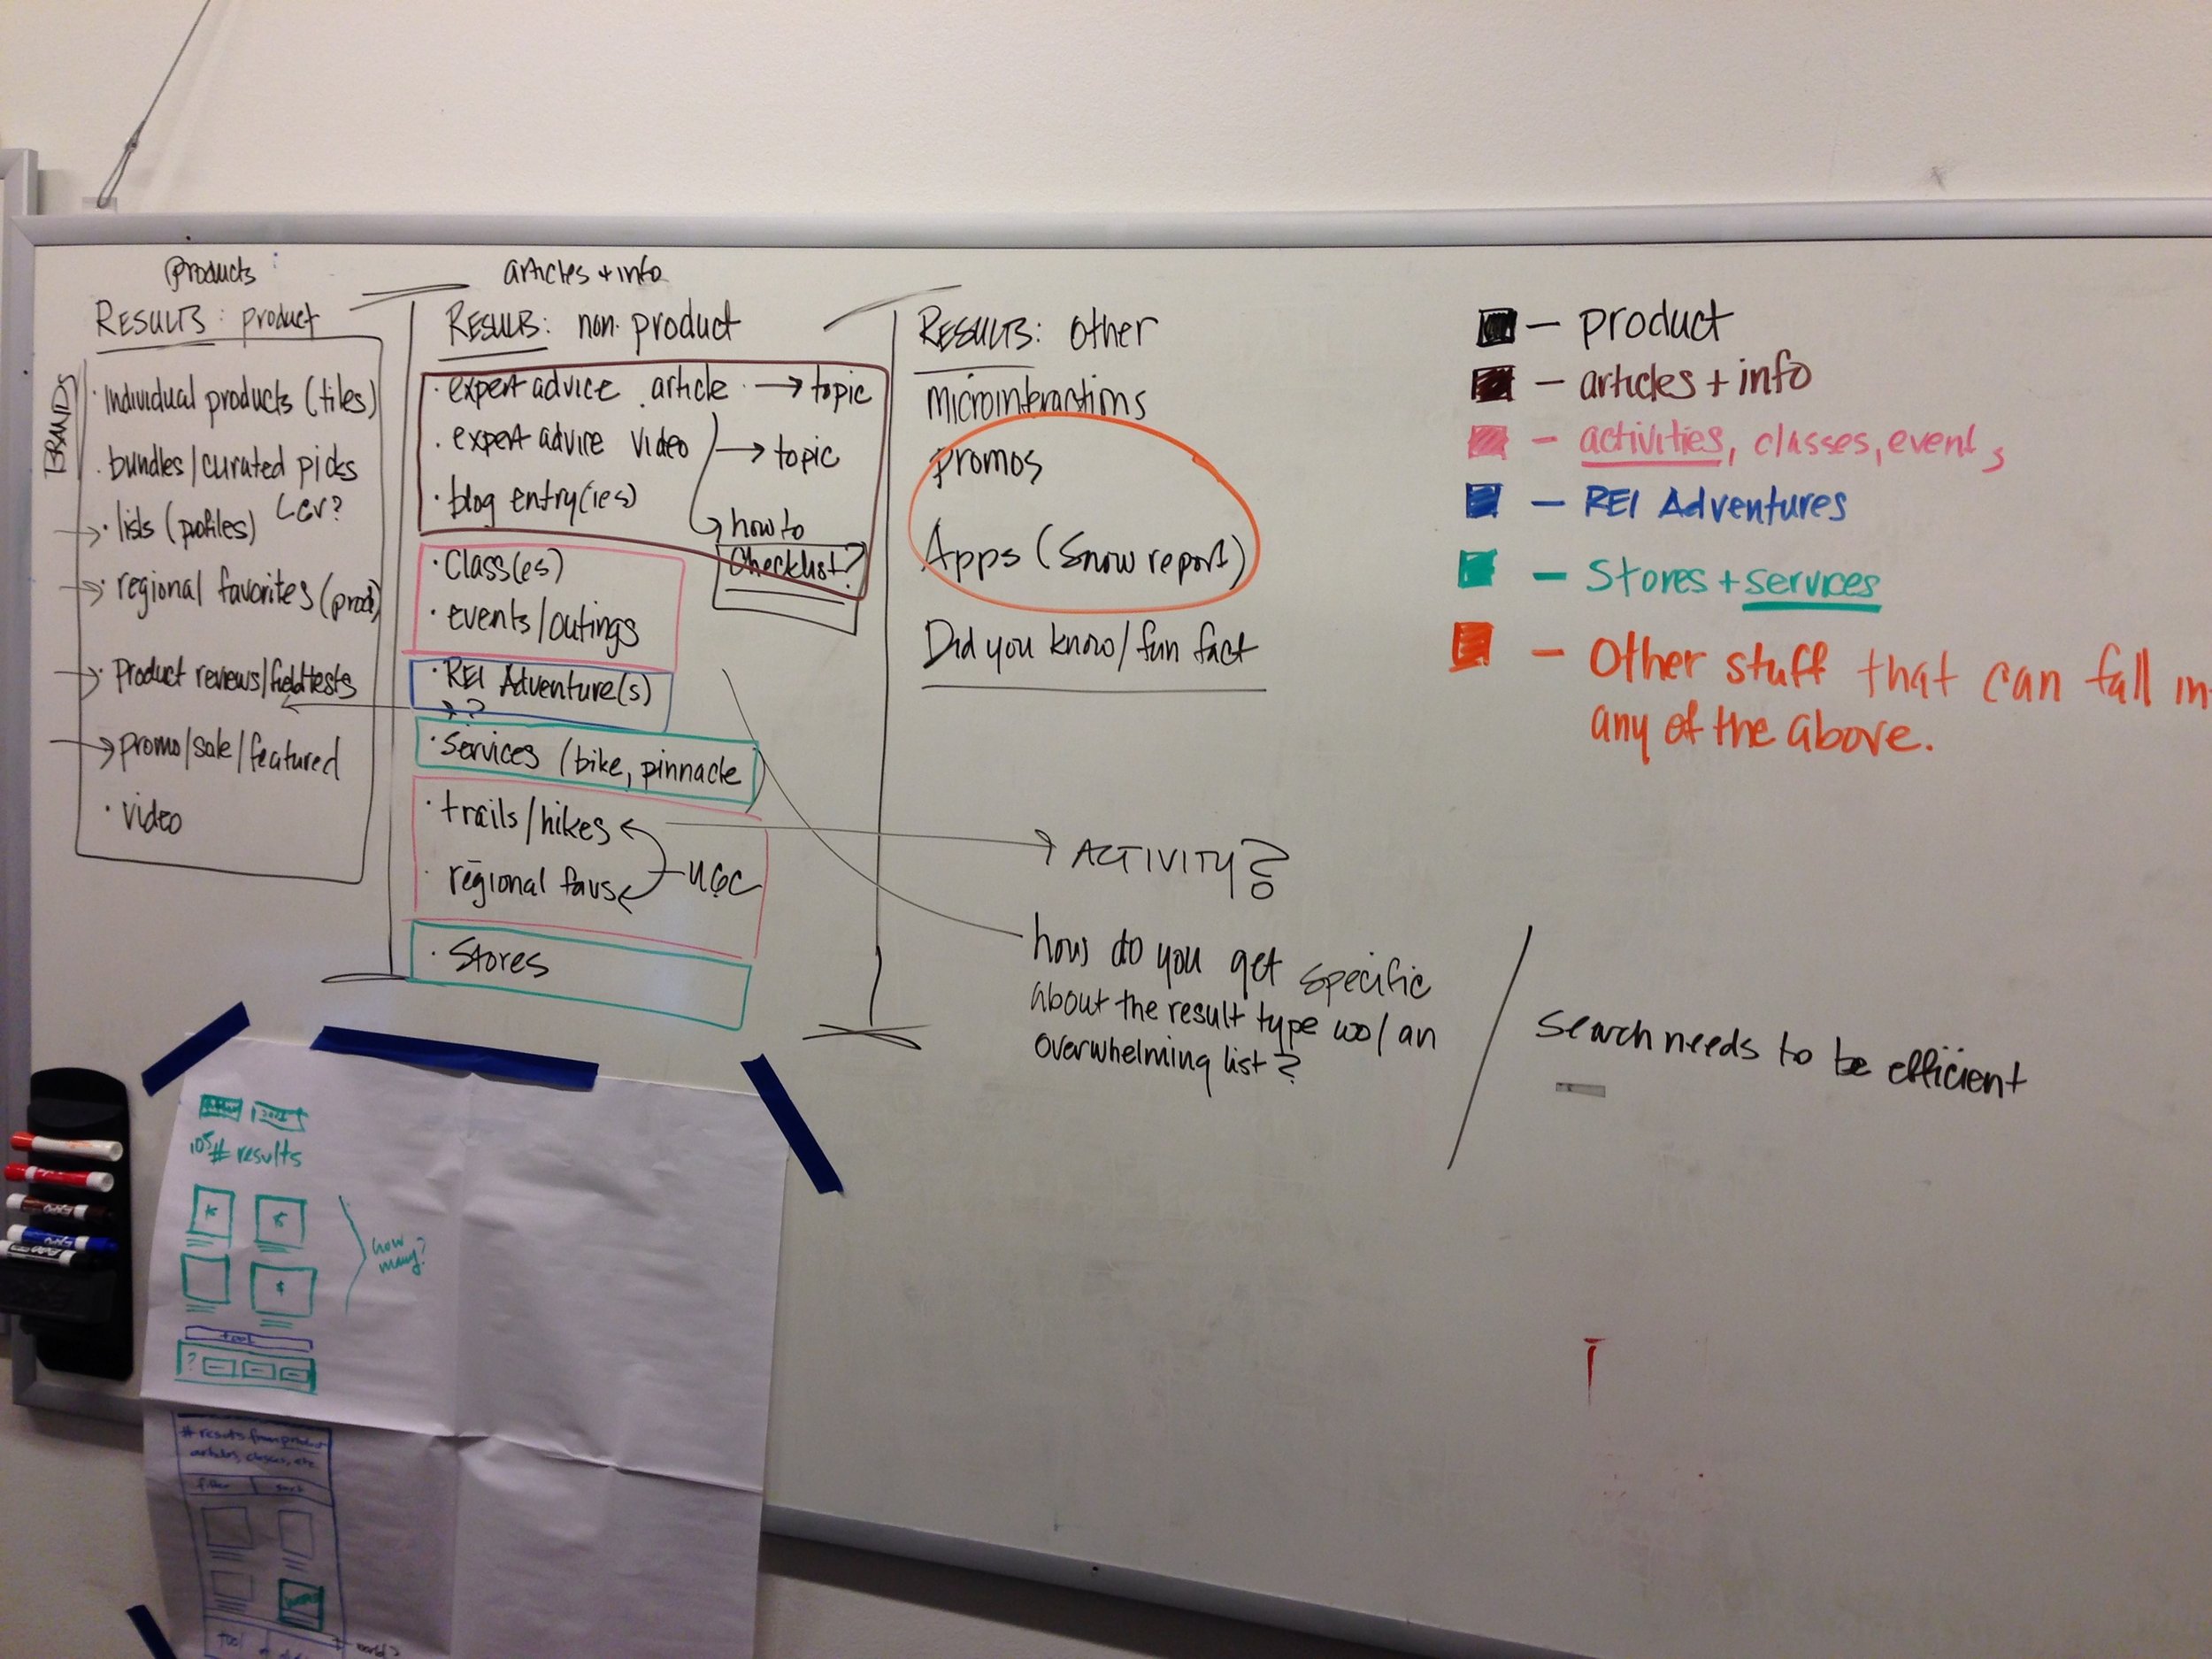 products
RESULTS: product
BRANDS
· Individual products (tiles)
· bundles/curated picks
· lists (profiles)
· regional favorites (prod)
· Product reviews/fieldtests
promo/sale/featured
· video
articles + info
RESULTS: non. product
· expert advice article → topic
· expert advice video → topic
· blog entry(ies)
how to
Checklist?
· Class(es)
· events/outings
· REI Adventure(s)
?
· Services (bike, pinnacle
· trails/hikes
· regional favs
UGC
· Stores
RESULTS: other
microinteractions
promos
Apps (Snow report)
Did you know/fun fact
ACTIVITY?
how do you get specific
about the result type wo/ an
overwhelming list?
Search needs to be efficient
– product
– articles + info
– activities, classes, events
– REI Adventures
– Stores + services
– Other stuff that can fall in
any of the above.
# results
how
many?
tool
?
# results from product
articles, classes, etc.
filter
sort
tool